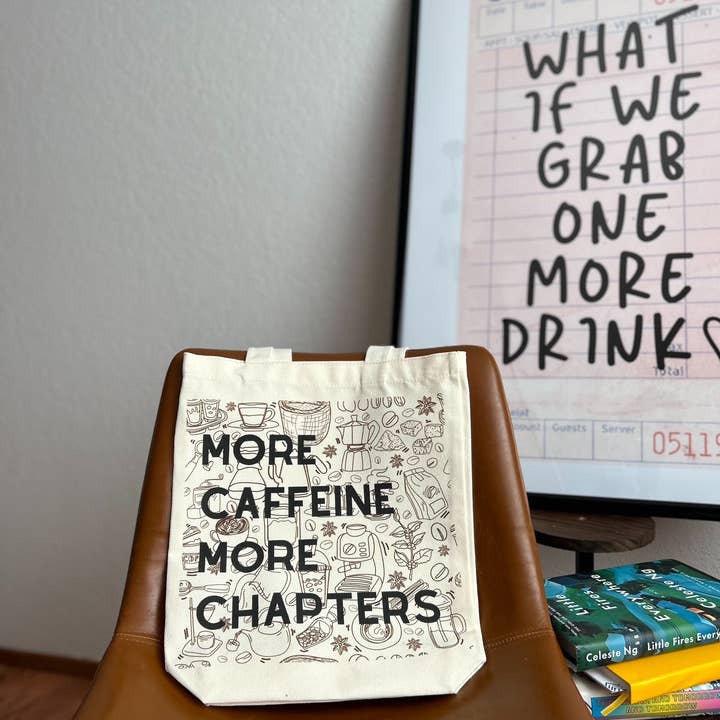 WHAT
IF WE
GRAB
ONE
MORE
DRINK
Total
Guests Server
05119
MORE
CAFFEINE
MORE
CHAPTERS
Celeste Ng
Little Fires Everywhere
Celeste Ng Little Fires Every
AND TOMORROW